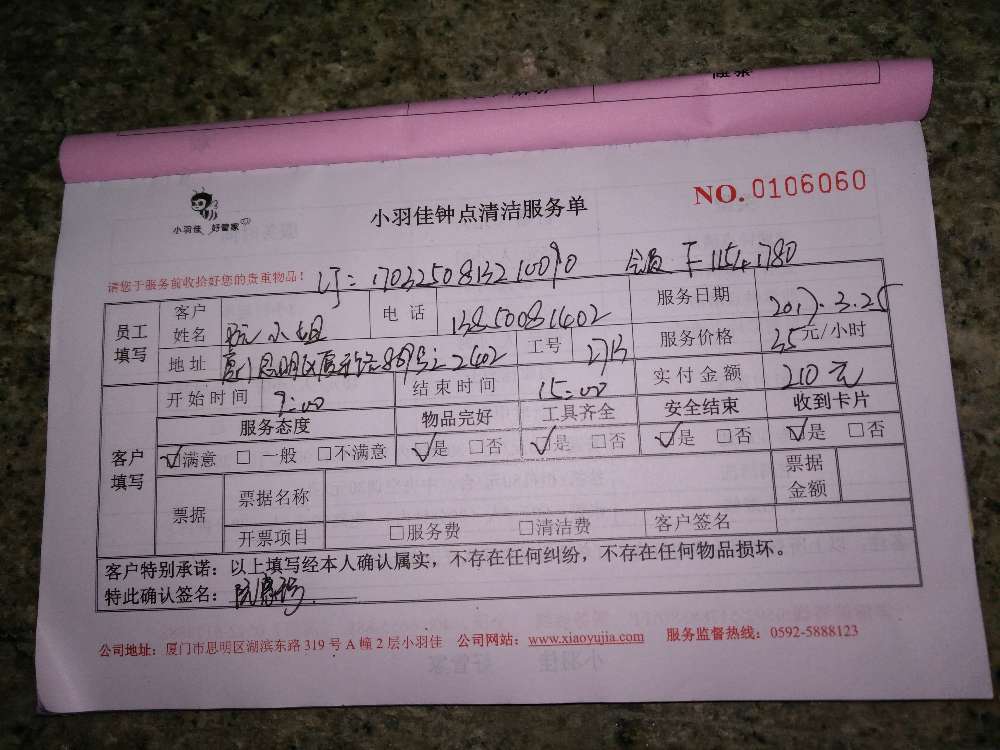 小羽佳 好管家
小羽佳钟点清洁服务单
NO. 0106060
请您于服务前收拾好您的贵重物品!
员工填写
客户姓名
阮小姐
电 话
13850081402
服务日期
2017.3.25
地址
2402
工号
服务价格
35元/小时
客户填写
开始时间
9:00
结束时间
15:00
实付金额
210元
服务态度
物品完好
工具齐全
安全结束
收到卡片
☑满意 □ 一般 □不满意
☑是 □否
☑是 □否
☑是 □否
☑是 □否
票据
票据名称
票据金额
开票项目
□服务费 □清洁费
客户签名
客户特别承诺:以上填写经本人确认属实,不存在任何纠纷,不存在任何物品损坏。
特此确认签名:
公司地址:厦门市思明区湖滨东路 319 号 A 幢 2 层小羽佳 公司网站:www.xiaoyujia.com 服务监督热线:0592-5888123